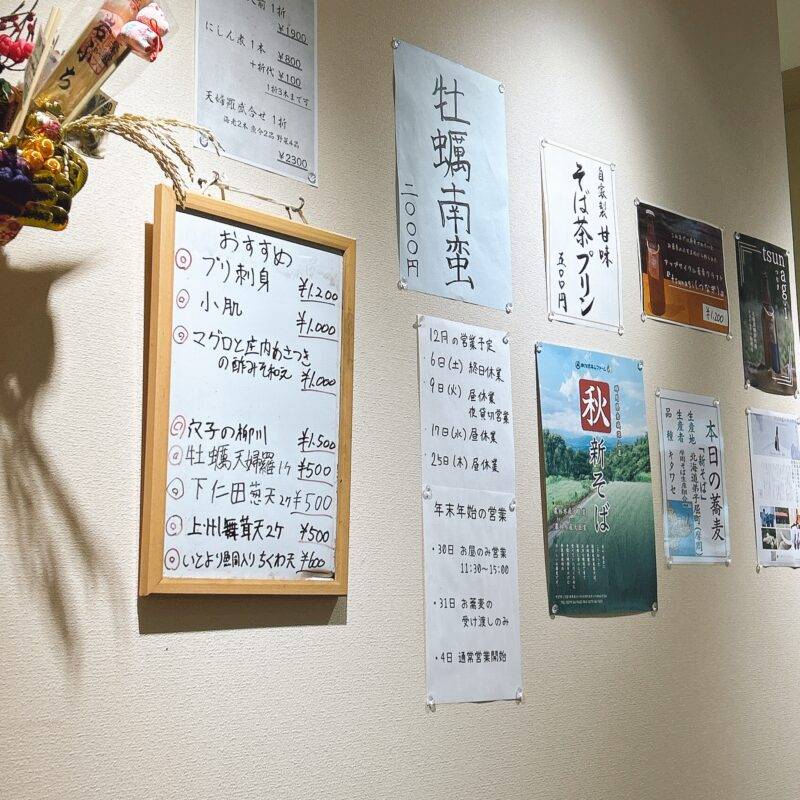 前 1折
¥1900
にしん煮 1本 ¥800
+折代 ¥100
1折3本まで可
天婦羅盛合せ 1折
海老2本 魚介2品 野菜4品
¥2300
おすすめ
ブリ刺身 ¥1.200
小肌 ¥1.000
マグロと庄内あさつき
の酢みそ和え ¥1.000
穴子の柳川 ¥1.500
牡蠣天婦羅1ケ ¥500
下仁田葱天2ケ ¥500
上州舞茸天2ケ ¥500
いとより鯛入りちくわ天 ¥600
牡蠣南蛮
二〇〇〇円
12月の営業予定
・6日(土) 終日休業
・9日(火) 昼休業
夜貸切営業
・17日(水) 昼休業
・25日(木) 昼休業
年末年始の営業
・30日 お昼のみ営業
11:30~15:00
・31日 お蕎麦の
受け渡しのみ
・4日 通常営業開始
自家製 甘味
そば茶プリン
五〇〇円
秋
新そば
¥1,200
tsun
ago
本日の蕎麦
「新そば」
生産地 北海道弟子屈町
生産者
品種 キタワセ